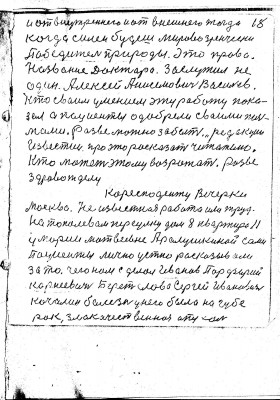 и от внутреннего и от внешнего тогда 18
когда силен будеш мировоззренчески
Победителем природы. Это право.
Название Доктара. Заслужил не
один. Алексей Анисимович Васильев.
Кто своим умением эту работу пока-
зал а пациенты одобрели своими пись-
мами. Разве можно забыть редакции
известен про это рассказать читателю.
Кто может этому возрожать. Разве
Здравотделу
Коресподенту Вечерки
Москва. Не известная работа или труд.
На поколевом переулку дом 8 квартира 11
у Марии матвевне Аралушкиной сами
Пациенты лично устно рассказывали
за то. чего нам сделал Иванов Парфирий
карнеевич Берет слово Сергей Иванович
качалин болезнь у него была на губе
рак, злокачественная опухоль